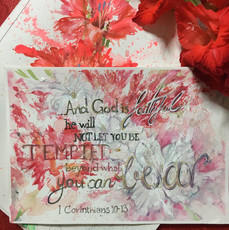 And God is faithful
he will
NOT LET YOU BE
TEMPTED
beyond what
you can bear
1 Corinthians 10:13